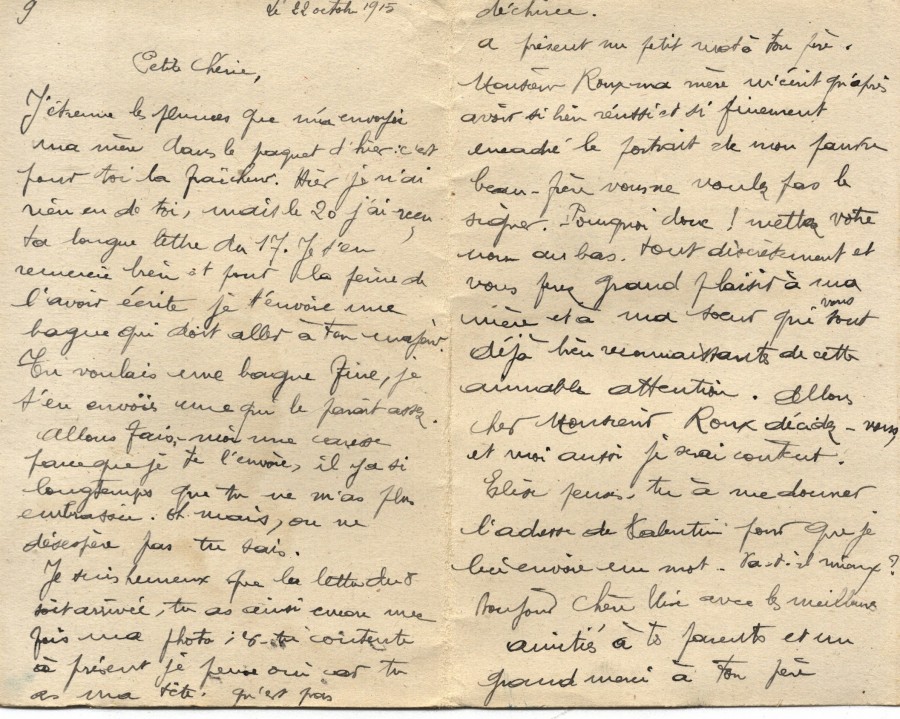 9
le 22 octobre 1915
Petite Chérie,
J'étrenne les plumes que m'a envoyées
ma mère dans le paquet d'hier : c'est
pour toi la fraîcheur. Hier je n'ai
rien eu de toi, mais le 20 j'ai reçu
ta longue lettre du 17. Je t'en
remercie bien et pour la peine de
l'avoir écrite je t'envoie une
bague qui doit aller à ton majeur.
Tu voulais une bague fine, je
t'en envoie une qui le paraît assez.
Allons fais-moi une caresse
pour que je te l'envoie, il y a si
longtemps que tu ne m'as plus
embrassée. Oh mais, on ne
désespère pas tu sais.
Je suis heureux que la lettre du 8
soit arrivée, tu as ainsi encore une
fois ma photo ; es-tu contente
à présent je pense oui car tu
as ma tête. qu'est pas
déchirée.
a présent un petit mot à ton père.
Monsieur Roux ma mère m'écrit qu'après
avoir si bien réussi et si finement
encadré le portrait de mon pauvre
beau-frère vous ne voulez pas le
signer. Pourquoi donc ! mettez votre
nom au bas. tout discrètement et
vous ferez grand plaisir à ma
mère et à ma soeur qui vous sont
déjà bien reconnaissantes de cette
aimable attention. Allons
cher Monsieur Roux décidez-vous
et moi aussi je serai content.
Elise penses-tu à me donner
l'adresse de Valentin pour que je
lui envoie un mot - Va-t-il mieux ?
Bonjour Chère Lise avec les meilleures
amitiés à tes parents et un
grand merci à ton père